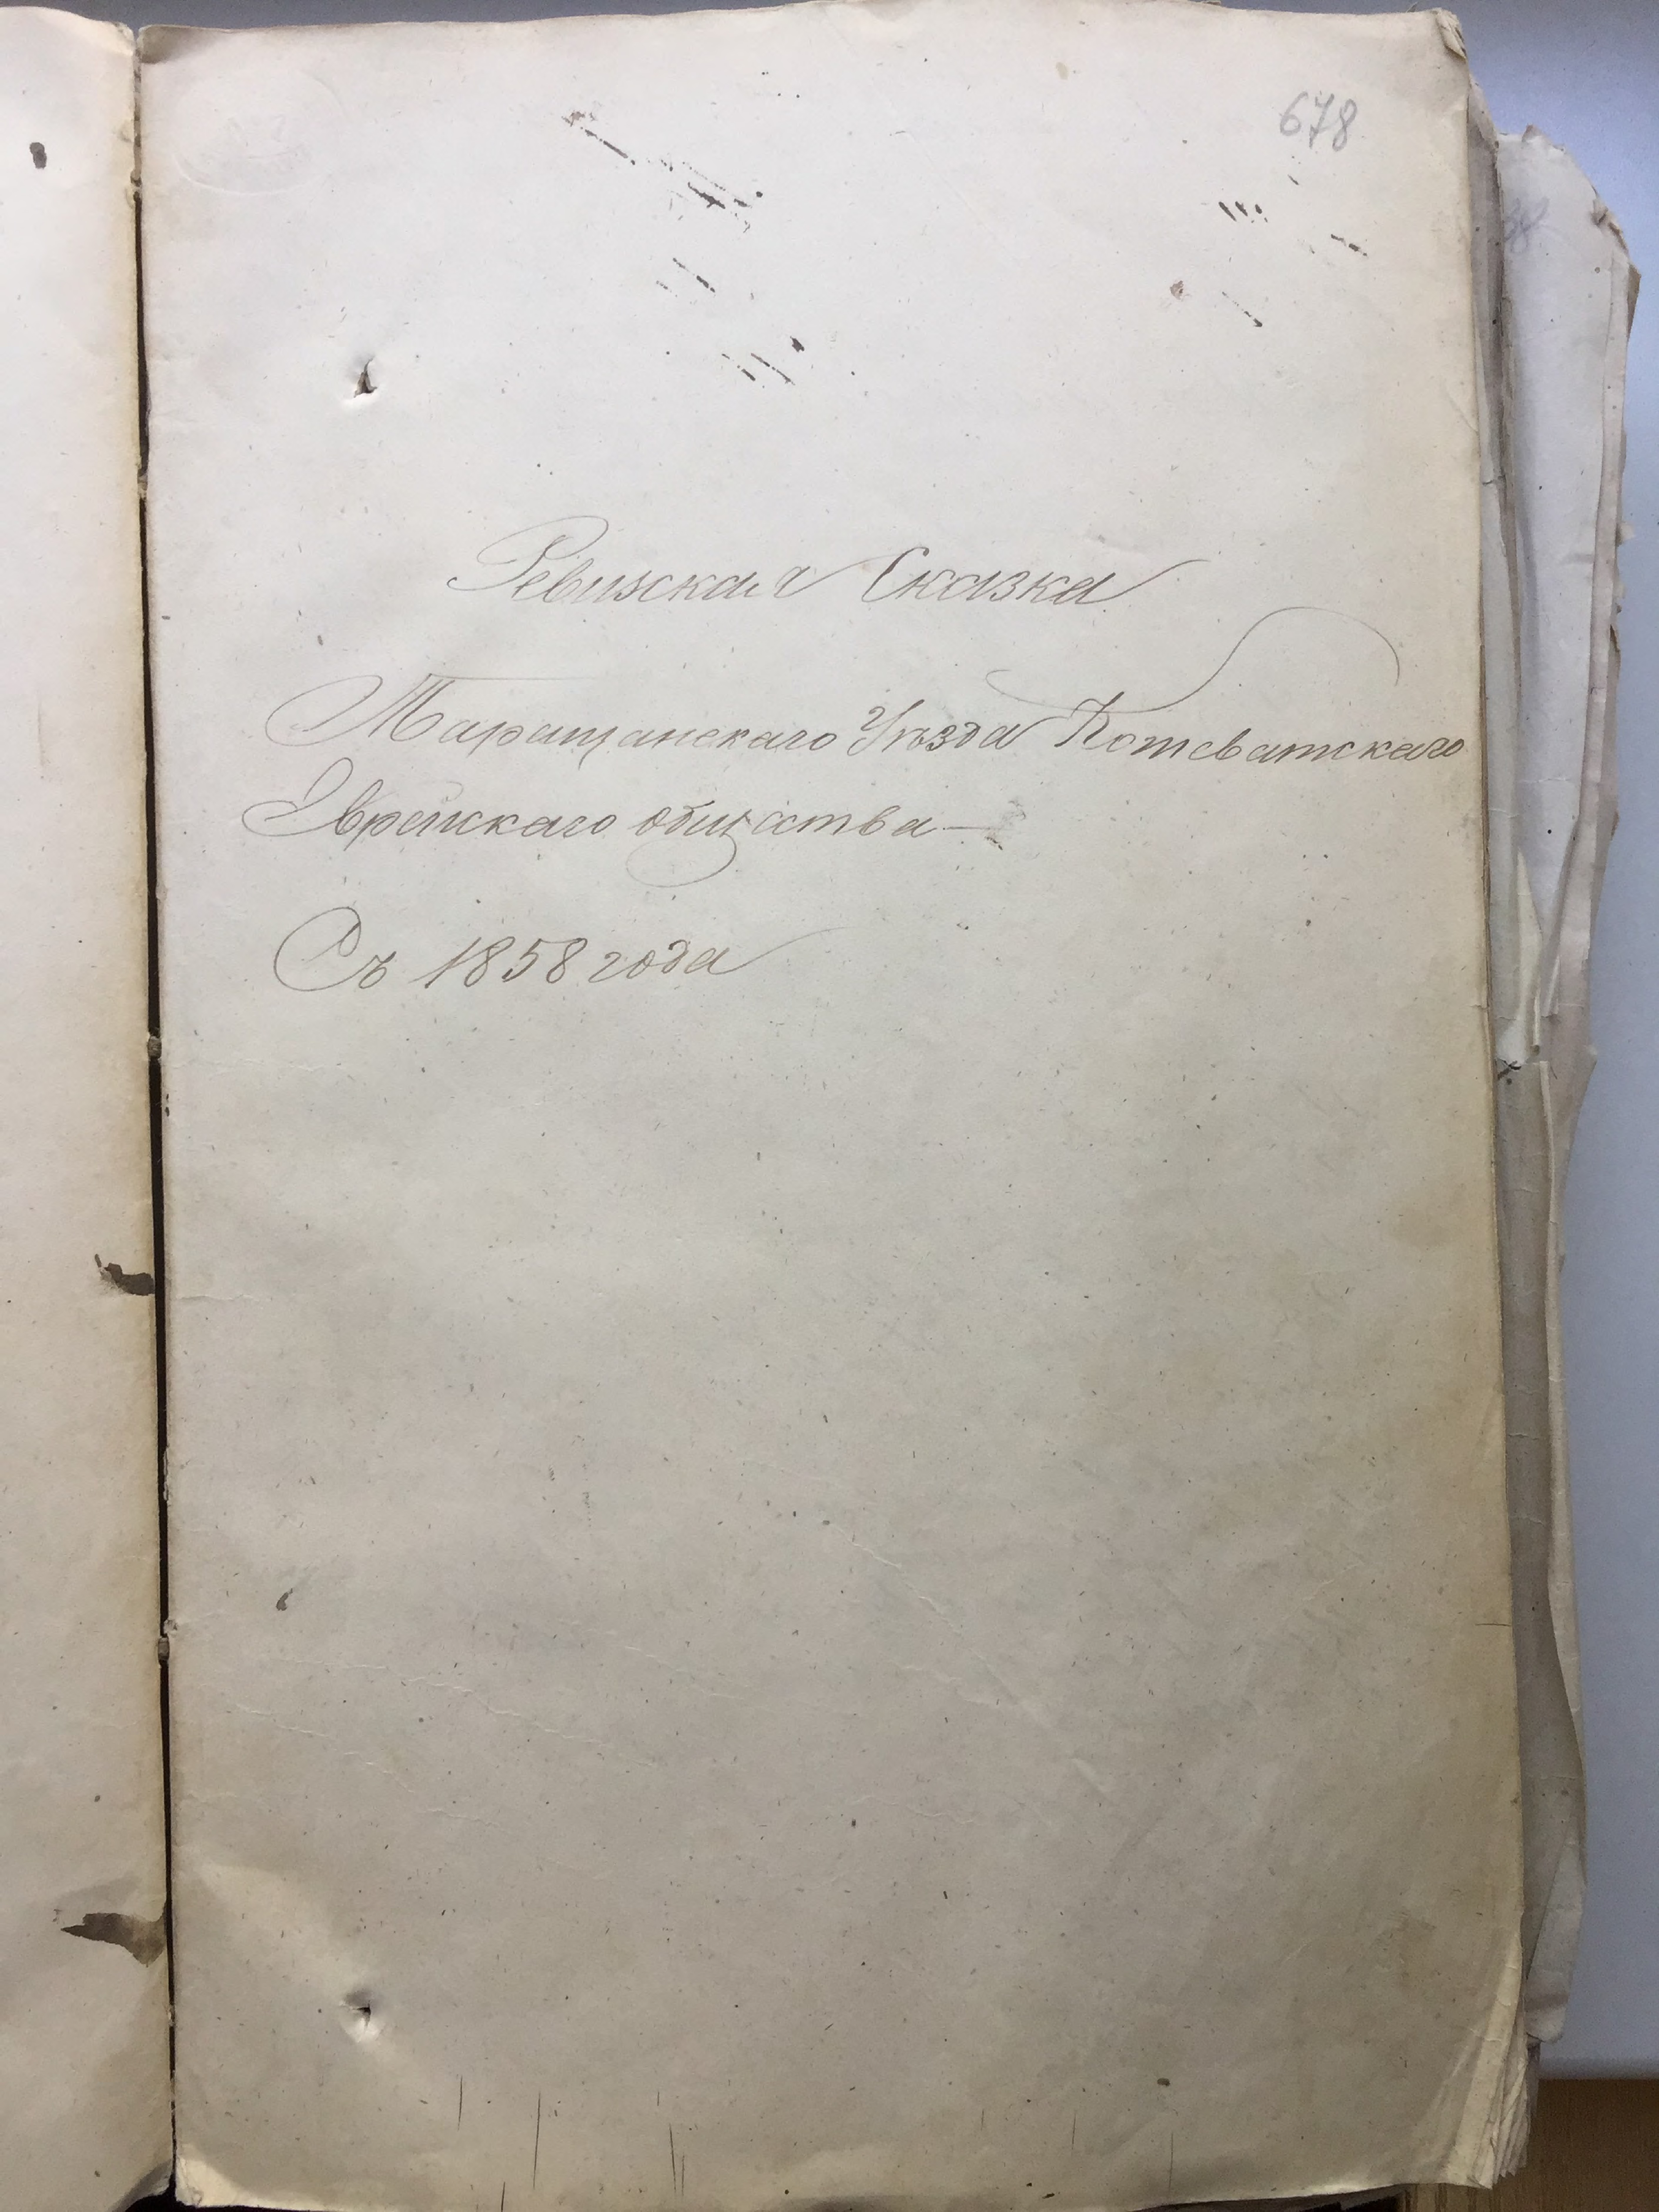 678
Ревизская Сказка
Таращанскаго Уѣзда Кошеватскаго
Еврейскаго общества —
Съ 1858 года